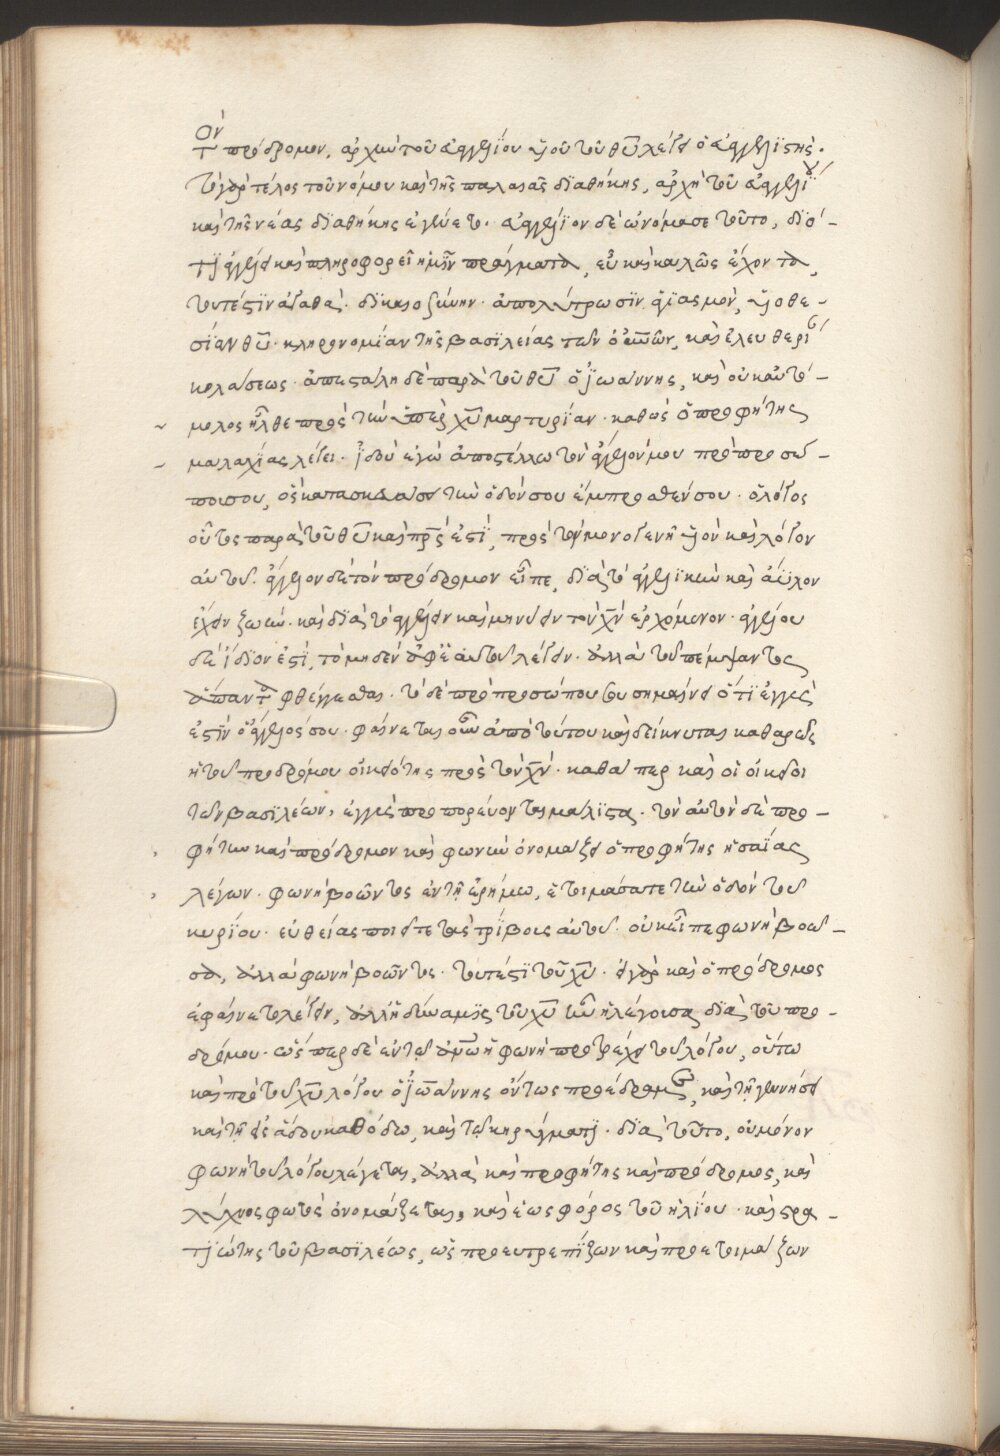 Τὸν πρόδρομον, ἀρχὴν τοῦ εὐαγγελίου υἱοῦ τοῦ θεοῦ λέγει ὁ εὐαγγελιστής.
τὸ γὰρ τέλος τοῦ νόμου καὶ τῆς παλαιᾶς διαθήκης, ἀρχὴ τοῦ εὐαγγελίου
καὶ τῆς νέας διαθήκης ἐγένετο. εὐαγγέλιον δὲ ὠνόμασε τοῦτο, διό-
τι ἀγγέλει καὶ πληροφορεῖ ἡμῖν πράγματα, εὖ καὶ καλῶς ἔχοντα,
τουτέστιν ἀγαθά. δικαιοσύνην. ἀπολύτρωσιν. ἁγιασμόν, υἱοθε-
σίαν θεοῦ. κληρονομίαν τῆς βασιλείας τῶν οὐρανῶν, καὶ ἐλευθερίαν
κολάσεως. ἀπεστάλη δὲ παρὰ τοῦ θεοῦ ὁ ἰωάννης, καὶ οὐκ αὐτό-
μολος ἦλθε πρὸς τὴν ὑπὲρ χῦ μαρτυρίαν. καθὼς ὁ προφήτης
μαλαχίας λέγει. ἰδοὺ ἐγὼ ἀποστέλλω τὸν ἄγγελόν μου πρὸ προσώ-
που σου, ὃς κατασκευάσει τὴν ὁδόν σου ἔμπροσθέν σου. ὁ λόγος
οὗτος παρὰ τοῦ θῦ καὶ πρς ἐστί, πρὸς τὸν μονογενῆ υἱὸν καὶ λόγον
αὐτοῦ. ἄγγελον δὲ τὸν πρόδρομον εἶπε, διὰ τὸ ἀγγελικὴν καὶ ἄϋλον
ἔχειν ζωήν. καὶ διὰ τὸ ἀγγέλειν καὶ μηνύειν τὸν χν ἐρχόμενον. ἀγγέλου
δὲ ἴδιον ἐστί, τὸ μηδὲν ἀφ' ἑαυτοῦ λέγειν. ἀλλὰ τοῦ πέμψαντος
ἅπαντα φθέγγεσθαι. τὸ δὲ πρὸ προσώπου σου σημαίνει ὅτι ἐγγὺς
ἐστὶν ὁ ἄγγελός σου. φαίνεται οὖν ἀπὸ τούτου καὶ δείκνυται καθαρῶς
ἡ τοῦ προδρόμου οἰκειότης πρὸς τὸν χν. καθάπερ καὶ οἱ οἰκεῖοι
τῶν βασιλέων, ἐγγὺς προπορεύονται μάλιστα. τὸν αὐτὸν δὲ προ-
φήτην καὶ πρόδρομον καὶ φωνὴν ὀνομάζει ὁ προφήτης ἡσαΐας
λέγων. φωνὴ βοῶντος ἐν τῇ ἐρήμω, ἑτοιμάσατε τὴν ὁδὸν τοῦ
κυρίου. εὐθείας ποιεῖτε τὰς τρίβους αὐτοῦ. οὐκ εἶπε φωνὴ βοῶ-
σα, ἀλλὰ φωνὴ βοῶντος. τουτέστι τοῦ χῦ. εἰ γὰρ καὶ ὁ πρόδρομος
ἐφαίνετο λέγειν, ἀλλ' ἡ δύναμις τοῦ χῦ ἦν ἡ λέγουσα διὰ τοῦ προ-
δρόμου. ὥσπερ δὲ ἐν τῷ ἀνω ἡ φωνὴ προτρέχει τοῦ λόγου, οὕτω
καὶ πρὸ τοῦ χῦ λόγου ὁ ἰωάννης ὄντως προέδραμεν, καὶ τῇ γεννήσει
καὶ τῇ εἰς ἅδου καθόδω, καὶ τῷ κηρύγματι. διὰ τοῦτο, οὐ μόνον
φωνὴ τοῦ λόγου λέγεται, ἀλλὰ καὶ προφήτης καὶ πρόδρομος, καὶ
λύχνος φωτὸς ὀνομάζεται, καὶ ἑωσφόρος τοῦ ἡλίου. καὶ στρα-
τιώτης τοῦ βασιλέως, ὡς προευτρεπίζων καὶ προετοιμάζων